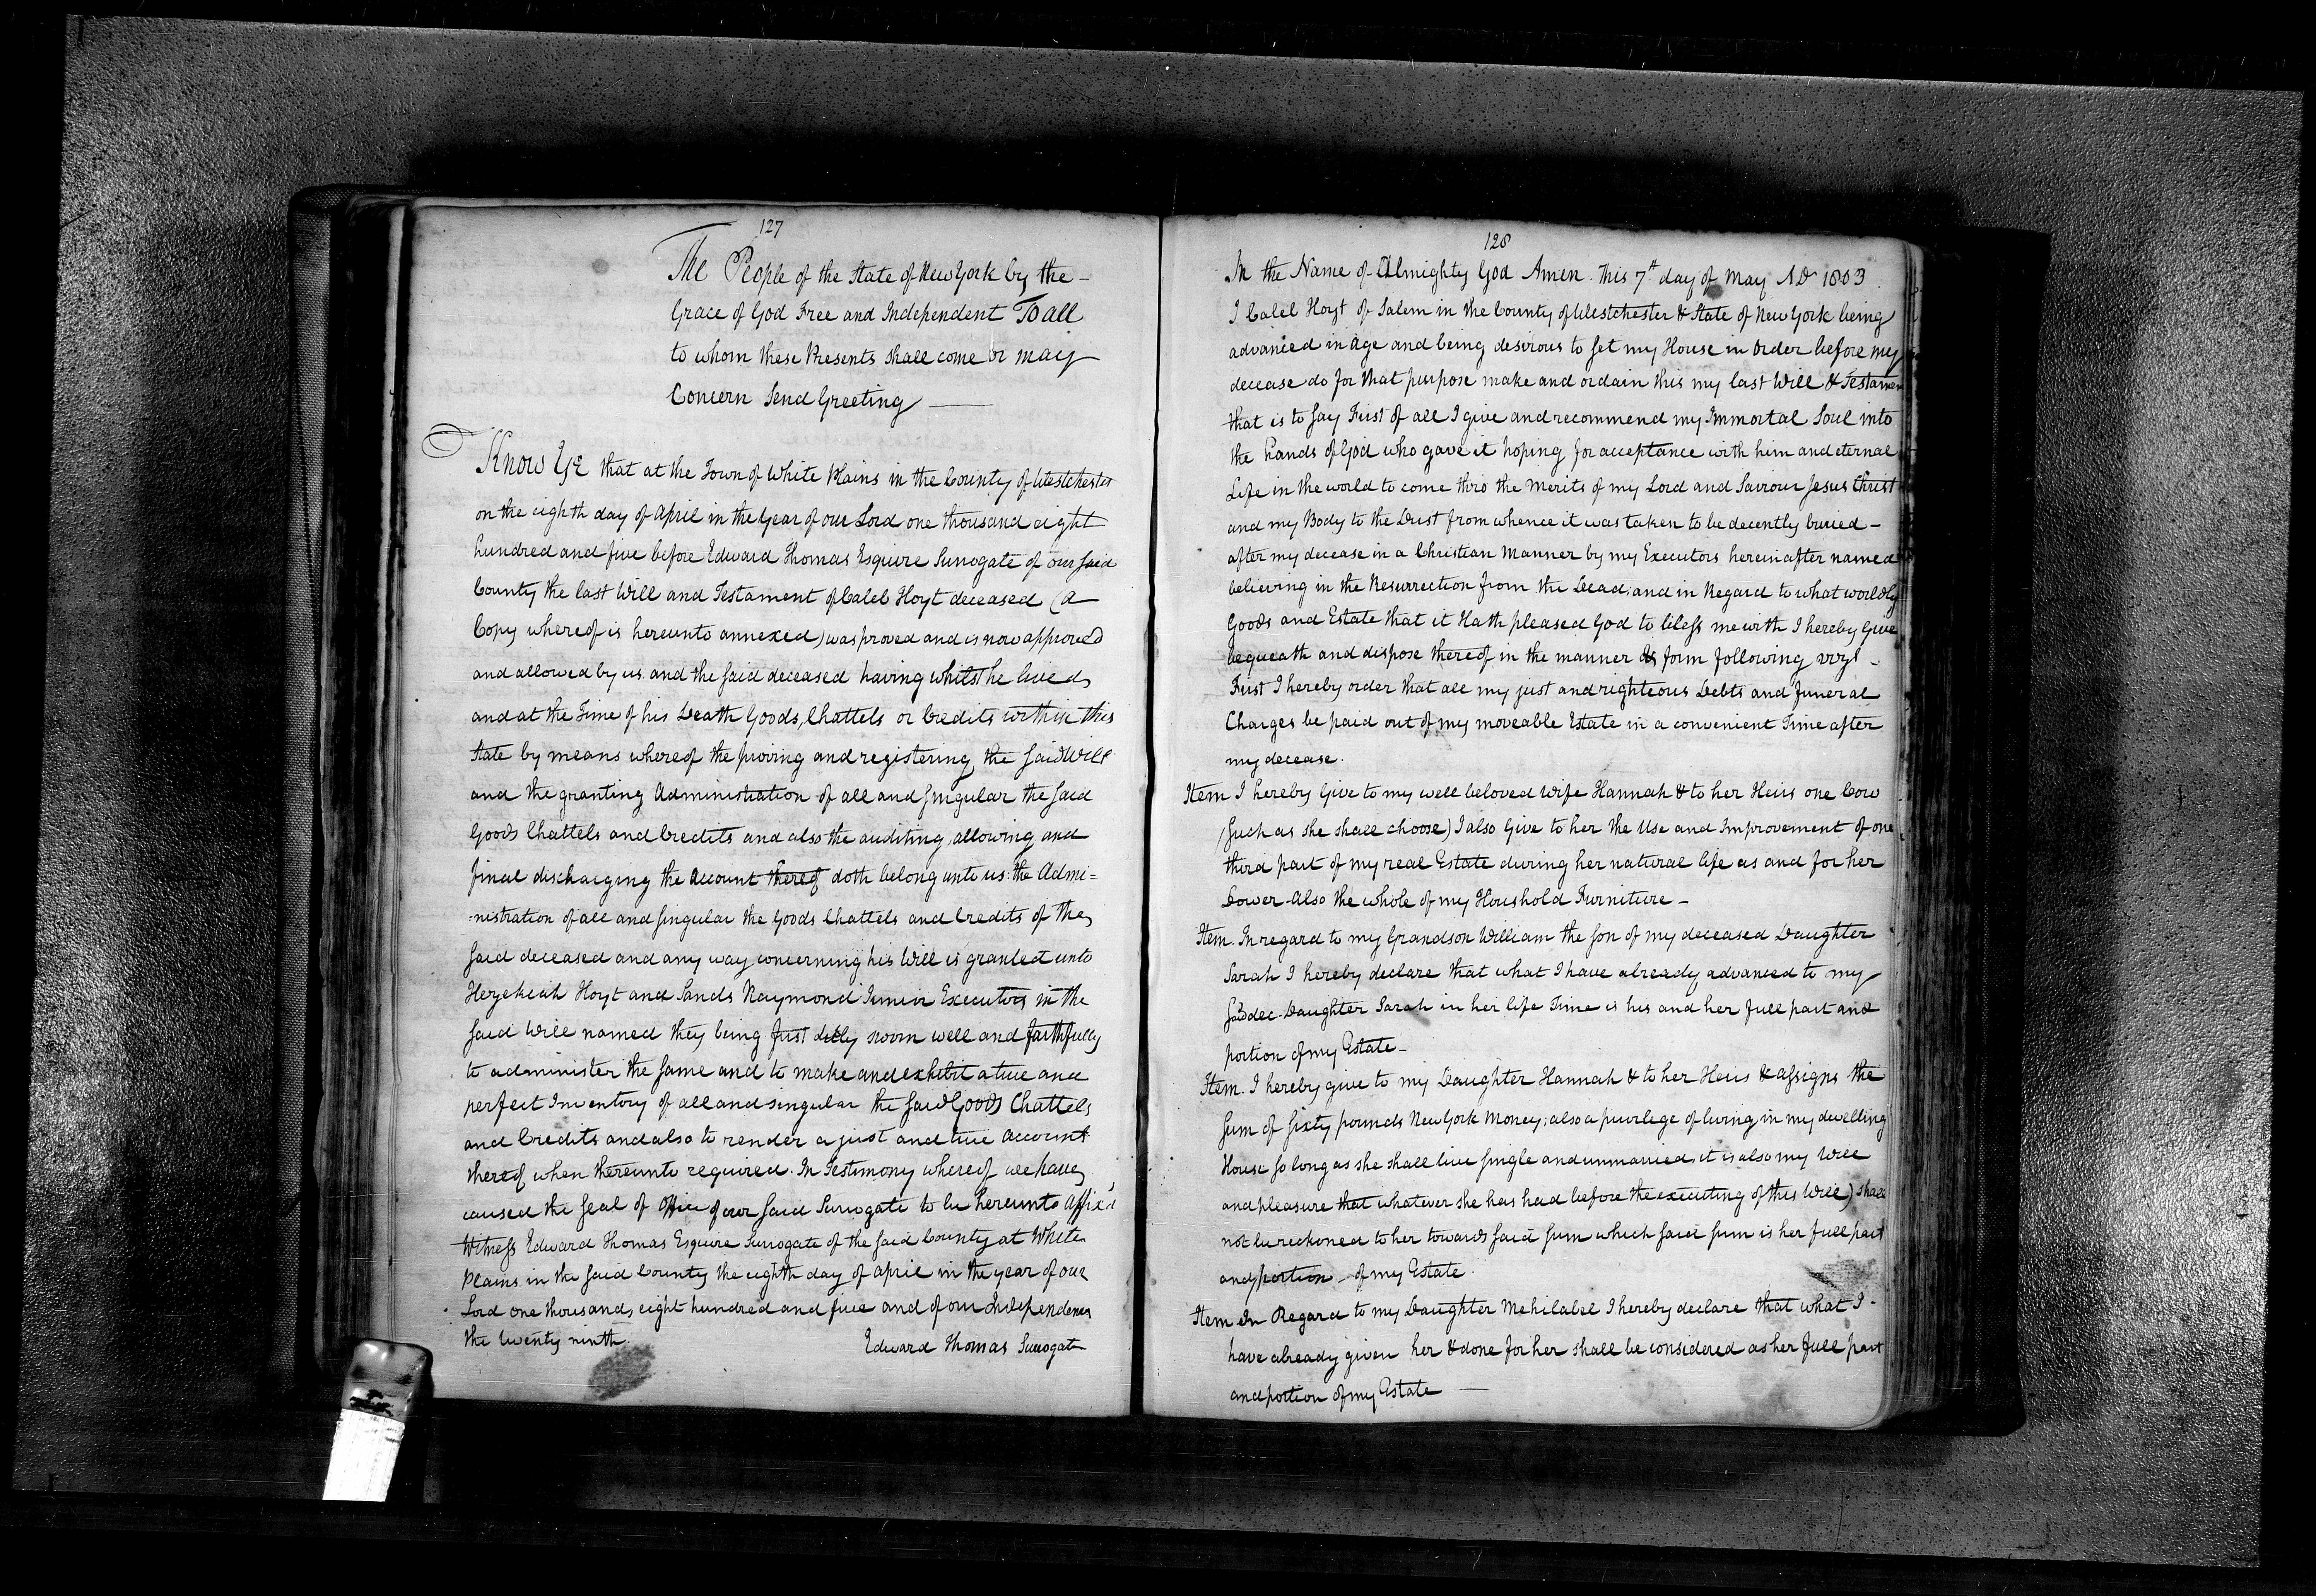 127
The People of the State of New York by the -
Grace of God Free and Independent To all
to whom these Presents shall come or may
Concern Send Greeting —
Know Ye that at the Town of White Plains in the County of Westchester
on the eighth day of April in the Year of our Lord one thousand eight
hundred and five before Edward Thomas Esquire Surrogate of our said
County the last Will and Testament of Caleb Hoyt deceased (a
Copy whereof is hereunto annexed) was proved and is now approved
and allowed by us and the said deceased having whilst he lived
and at the Time of his Death Goods, Chattels or Credits within this
State by means whereof the proving and registering the said Will
and the granting Administration of all and singular the said
Goods Chattels and Credits and also the auditing, allowing and
final discharging the Account thereof doth belong unto us: the Admi=
-nistration of all and singular the Goods Chattels and Credits of the
said deceased and any way concerning his Will is granted unto
Hezekiah Hoyt and Sands Raymond Junior Executors in the
said Will named they being first duly sworn well and faithfully
to administer the same and to make and exhibit a true and
perfect Inventory of all and singular the said Goods Chattels
and Credits and also to render a just and true Account
thereof when thereunto required. In Testimony whereof we have
caused the Seal of Office of our said Surrogate to be hereunto Affix'd
Witness Edward Thomas Esquire Surrogate of the said County at White
Plains in the said County the eighth day of April in the year of our
Lord one thousand, eight hundred and five and of our Independence
the twenty ninth. Edward Thomas Surrogate
128
In the Name of Almighty God Amen. This 7th day of May AD 1803.
I Caleb Hoyt of Salem in the County of Westchester & State of New York being
advanced in Age and being desirous to set my House in Order before my
decease do for that purpose make and ordain this my last Will & Testamen
that is to say First of all I give and recommend my Immortal Soul into
the hands of God who gave it hoping for acceptance with him and eternal
Life in the world to come thro the Merits of my Lord and Saviour Jesus Christ
and my Body to the Dust from whence it was taken to be decently buried -
after my decease in a Christian Manner by my Executors hereinafter named
believing in the Resurrection from the Dead; and in Regard to what worldly
Goods and Estate that it Hath pleased God to bless me with I hereby Give
bequeath and dispose thereof in the manner & form following vizt -
First I hereby order that all my just and righteous Debts and funeral
Charges be paid out of my moveable Estate in a convenient Time after
my decease.
Item I hereby Give to my well beloved Wife Hannah & to her Heirs one Cow
(such as she shall choose) I also Give to her the Use and Improvement of one
third part of my real Estate during her natural life as and for her
Dower Also the whole of my Houshold Furniture -
Item. In regard to my Grandson William the son of my deceased Daughter
Sarah I hereby declare that what I have already advanced to my
said dec. Daughter Sarah in her life Time is his and her full part and
portion of my Estate -
Item. I hereby give to my Daughter Hannah & to her Heirs & assigns the
sum of sixty pounds New York Money; also a privilege of living in my dwelling
House so long as she shall live single and unmarried, it is also my Will
and pleasure that whatever she has had before the executing of this Will) shall
not be reckoned to her towards said sum which said sum is her full part
and portion - of my Estate.
Item In Regard to my Daughter Mehilabel I hereby declare that what I -
have already given her & done for her shall be considered as her full part
and portion of my Estate —